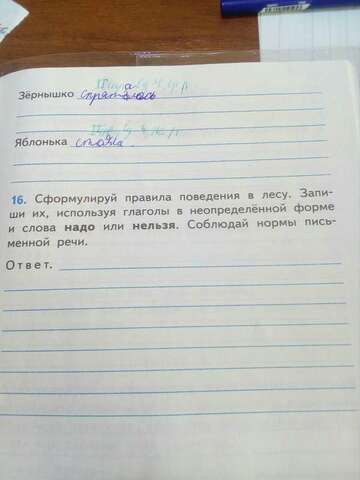 Зёрнышко спряталось
Яблонька стояла.
16. Сформулируй правила поведения в лесу. Запи-
ши их, используя глаголы в неопределённой форме
и слова надо или нельзя. Соблюдай нормы пись-
менной речи.
Ответ.